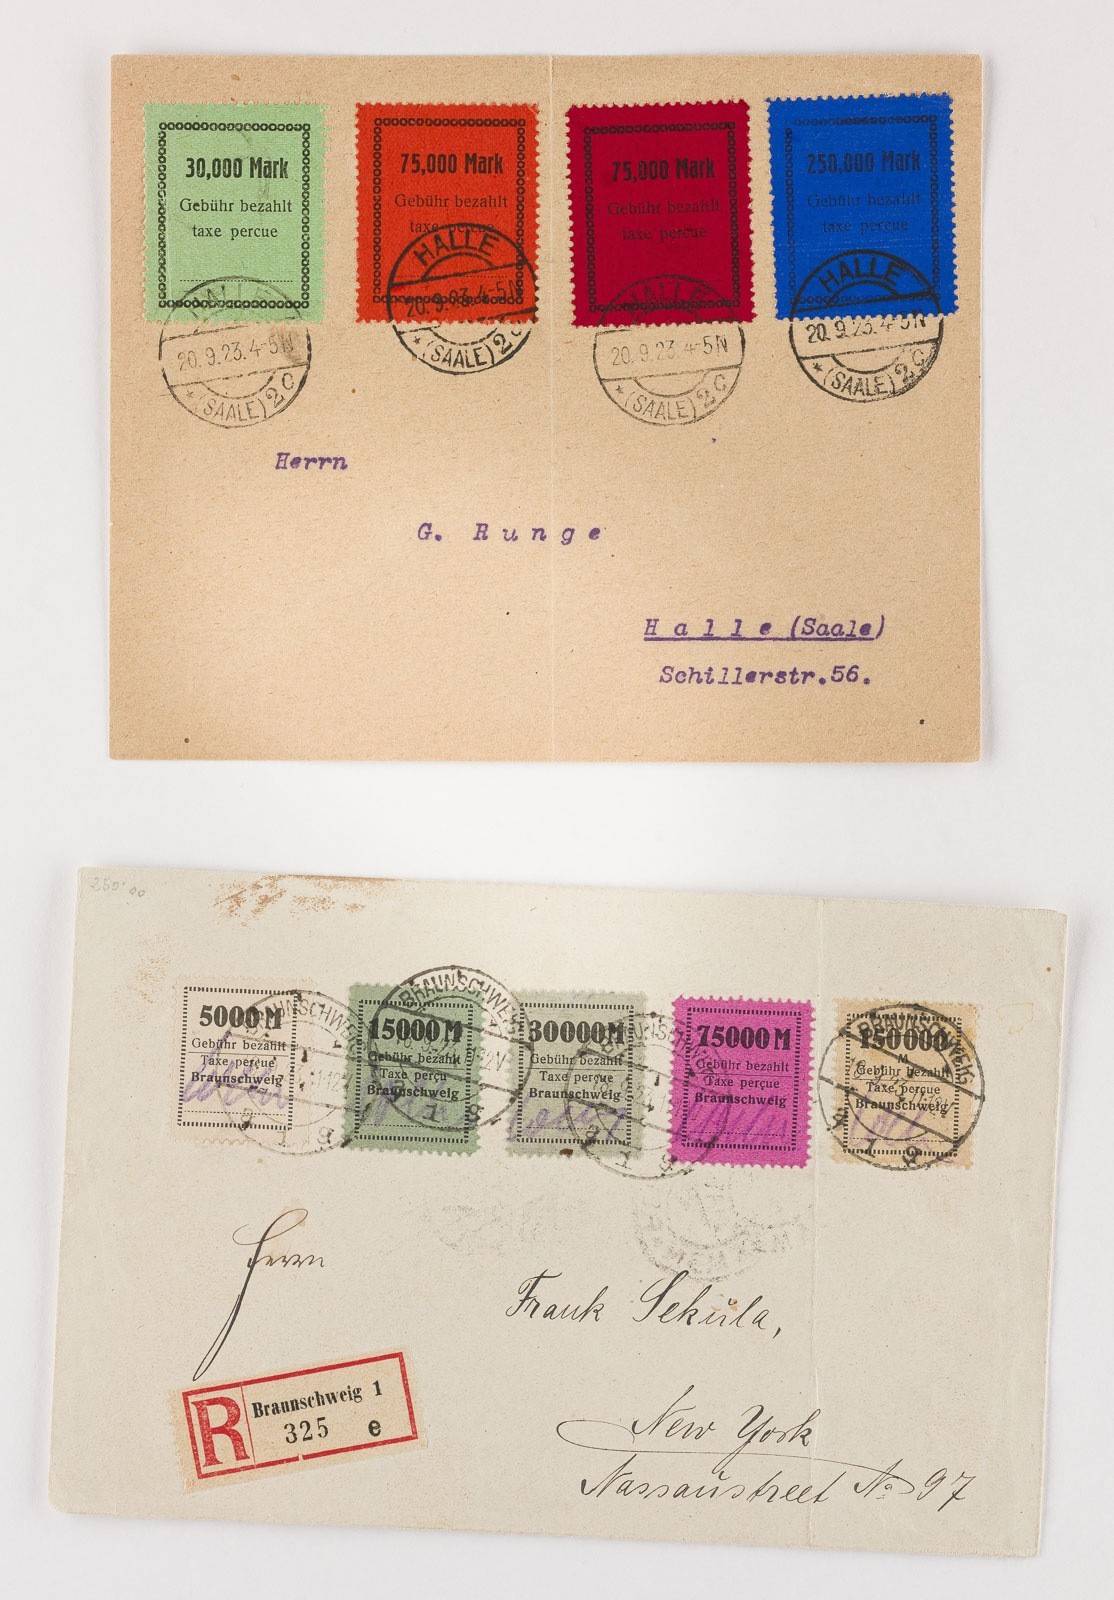 30,000 Mark
Gebühr bezahlt
taxe percue
75,000 Mark
Gebühr bezahlt
taxe percue
75,000 Mark
Gebühr bezahlt
taxe percue
250,000 Mark
Gebühr bezahlt
taxe percue
HALLE
20.9.23.4-5N
* (SAALE) 2c
HALLE
20.9.23.4-5N
* (SAALE) 2c
HALLE
20.9.23.4-5N
* (SAALE) 2c
HALLE
20.9.23.4-5N
* (SAALE) 2c
Herrn
G. Runge
Halle (Saale)
Schillerstr.56.
5000 M
Gebühr bezahlt
Taxe perçue
Braunschweig
15000 M
Gebühr bezahlt
Taxe perçue
Braunschweig
30000 M
Gebühr bezahlt
Taxe perçue
Braunschweig
75000 M
Gebühr bezahlt
Taxe perçue
Braunschweig
150000
M
Gebühr bezahlt
Taxe perçue
Braunschweig
BRAUNSCHWEIG
BRAUNSCHWEIG
BRAUNSCHWEIG
BRAUNSCHWEIG
Herrn
Frank Sekula,
New York
Nassaustreet No 97
R
Braunschweig 1
325 e